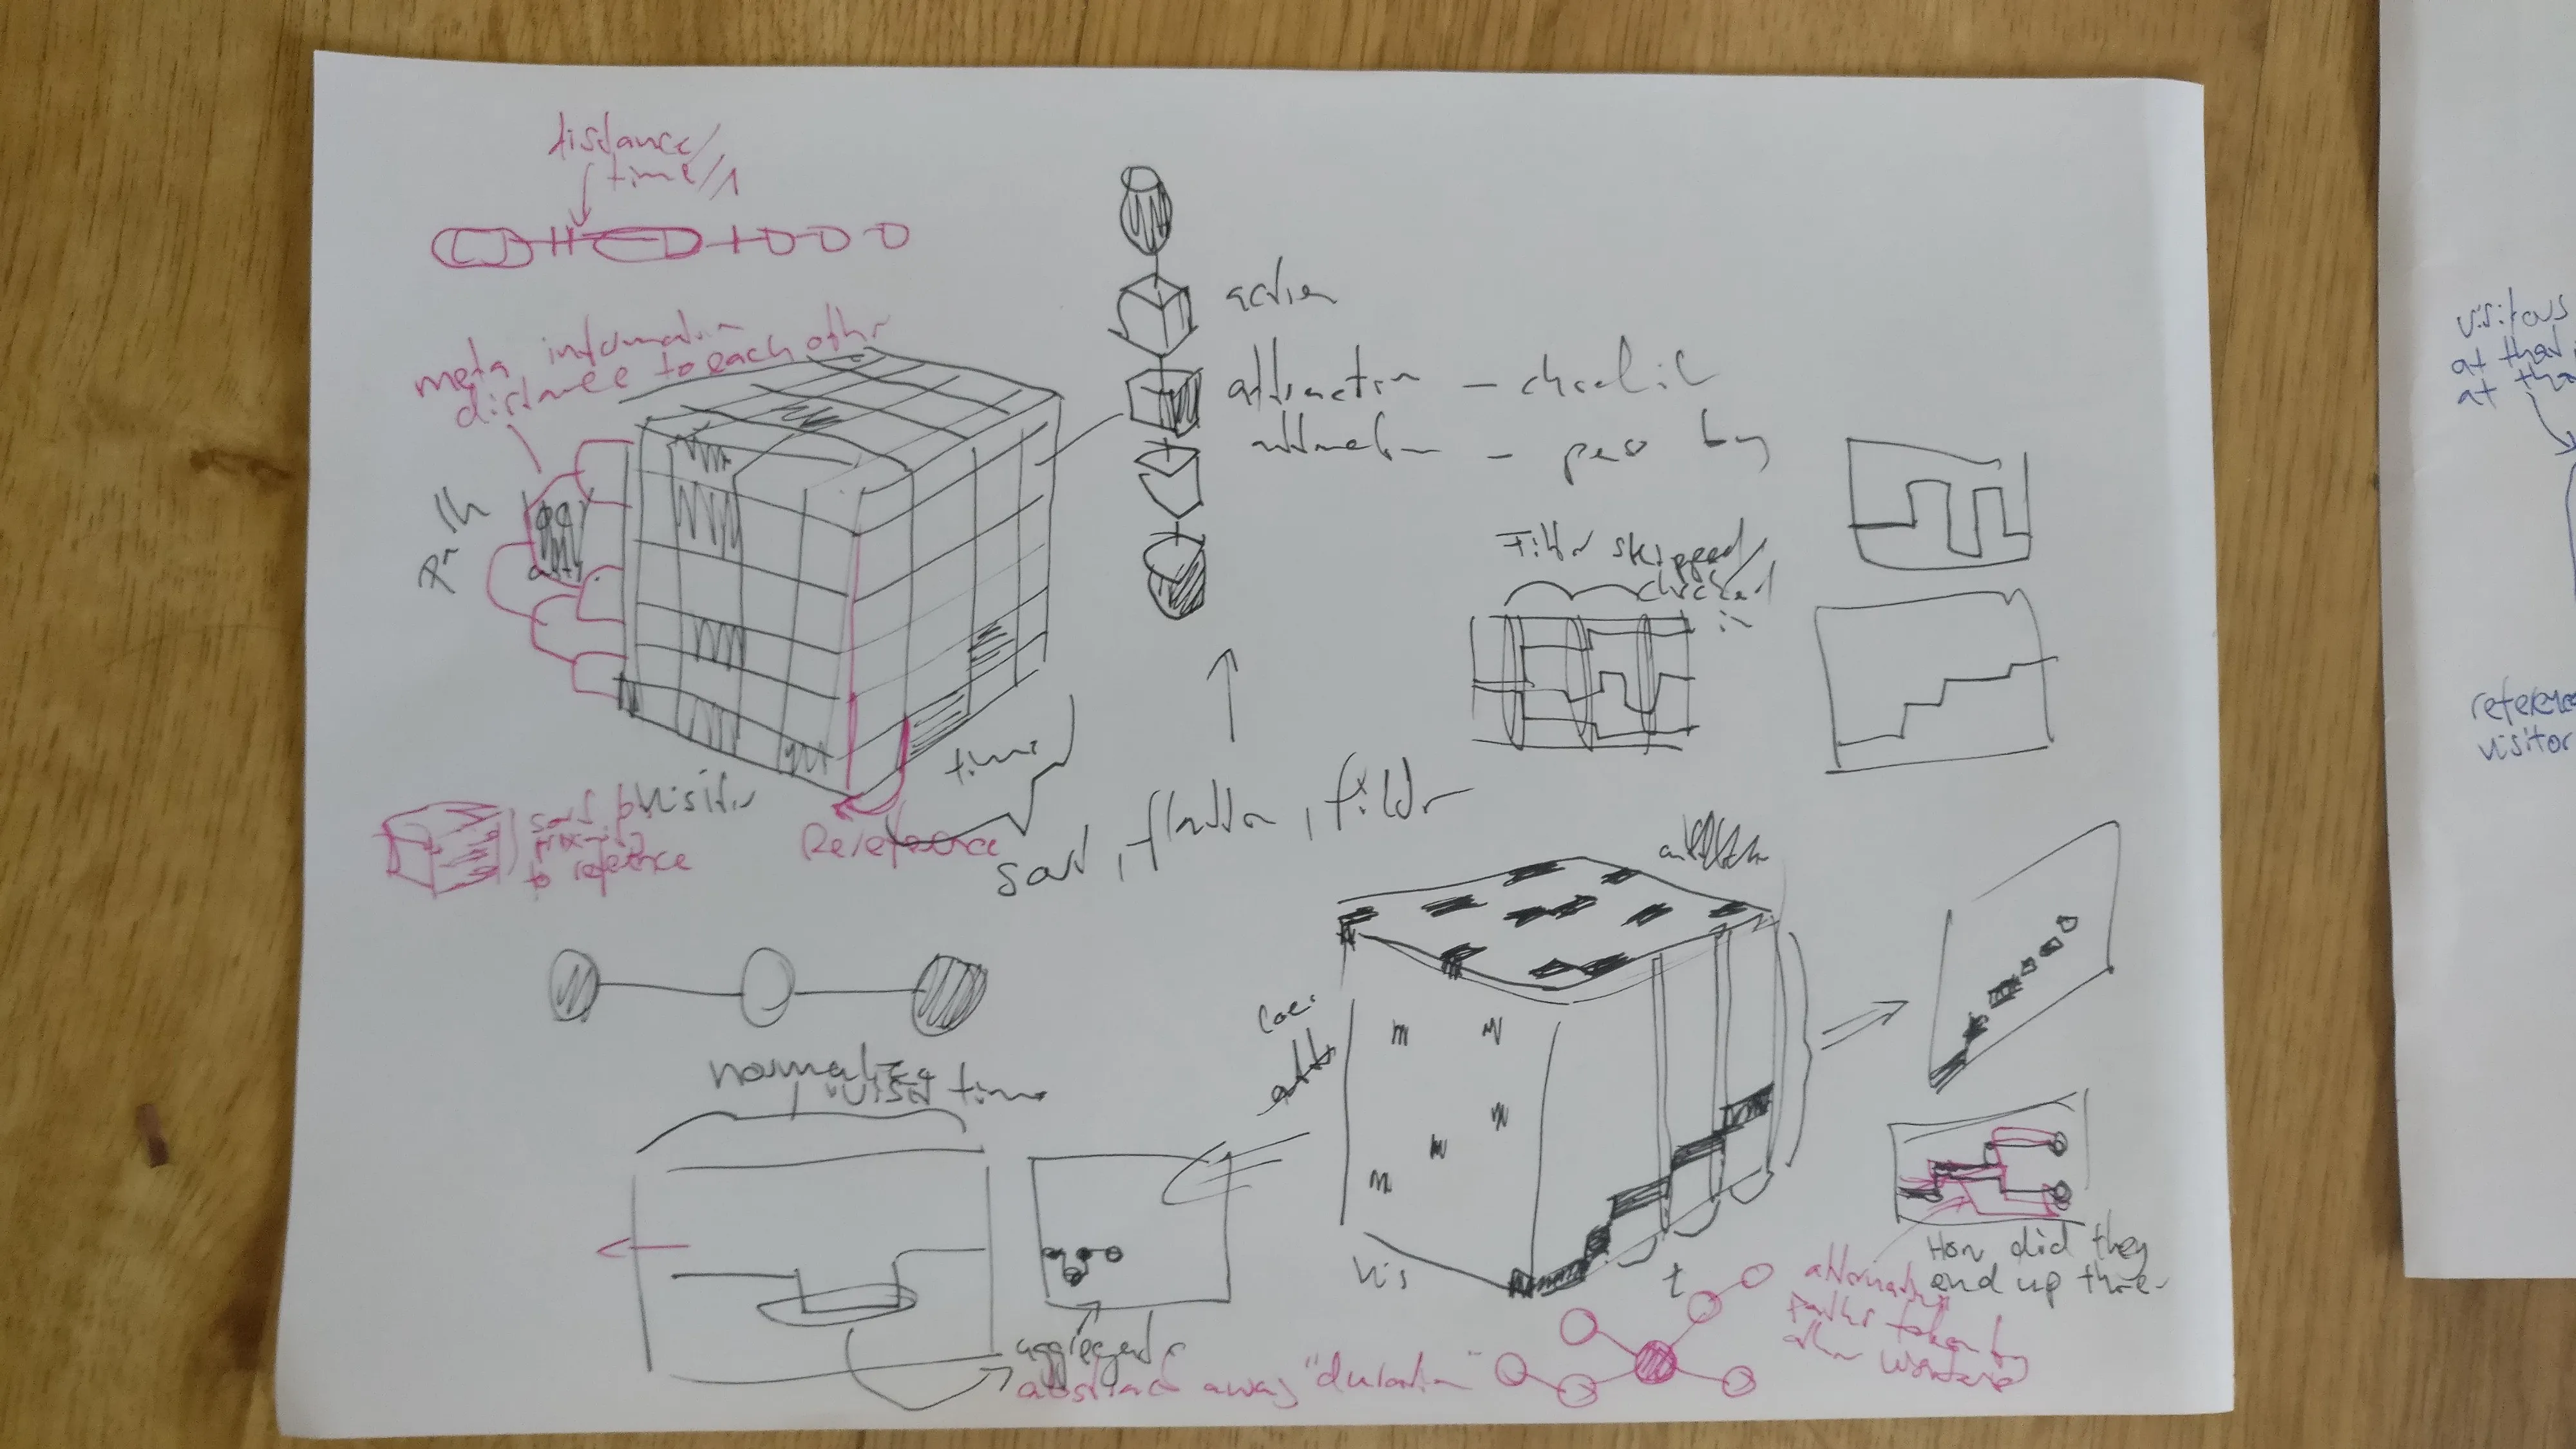 distance/
time/1
meta information
distance to each other
action
attraction -
- pass by
Path
Filter skipped/
checked
in
time
visitor
sort by
proximity
to reference
Reference
sort, flatten, filter
normalized
visit time
loc:
attr
vis
t
aggregate
abstract away "duration"
How did they
end up there
alternative
paths taken by
other visitors
visitors
at that
at tha
reference
visitor